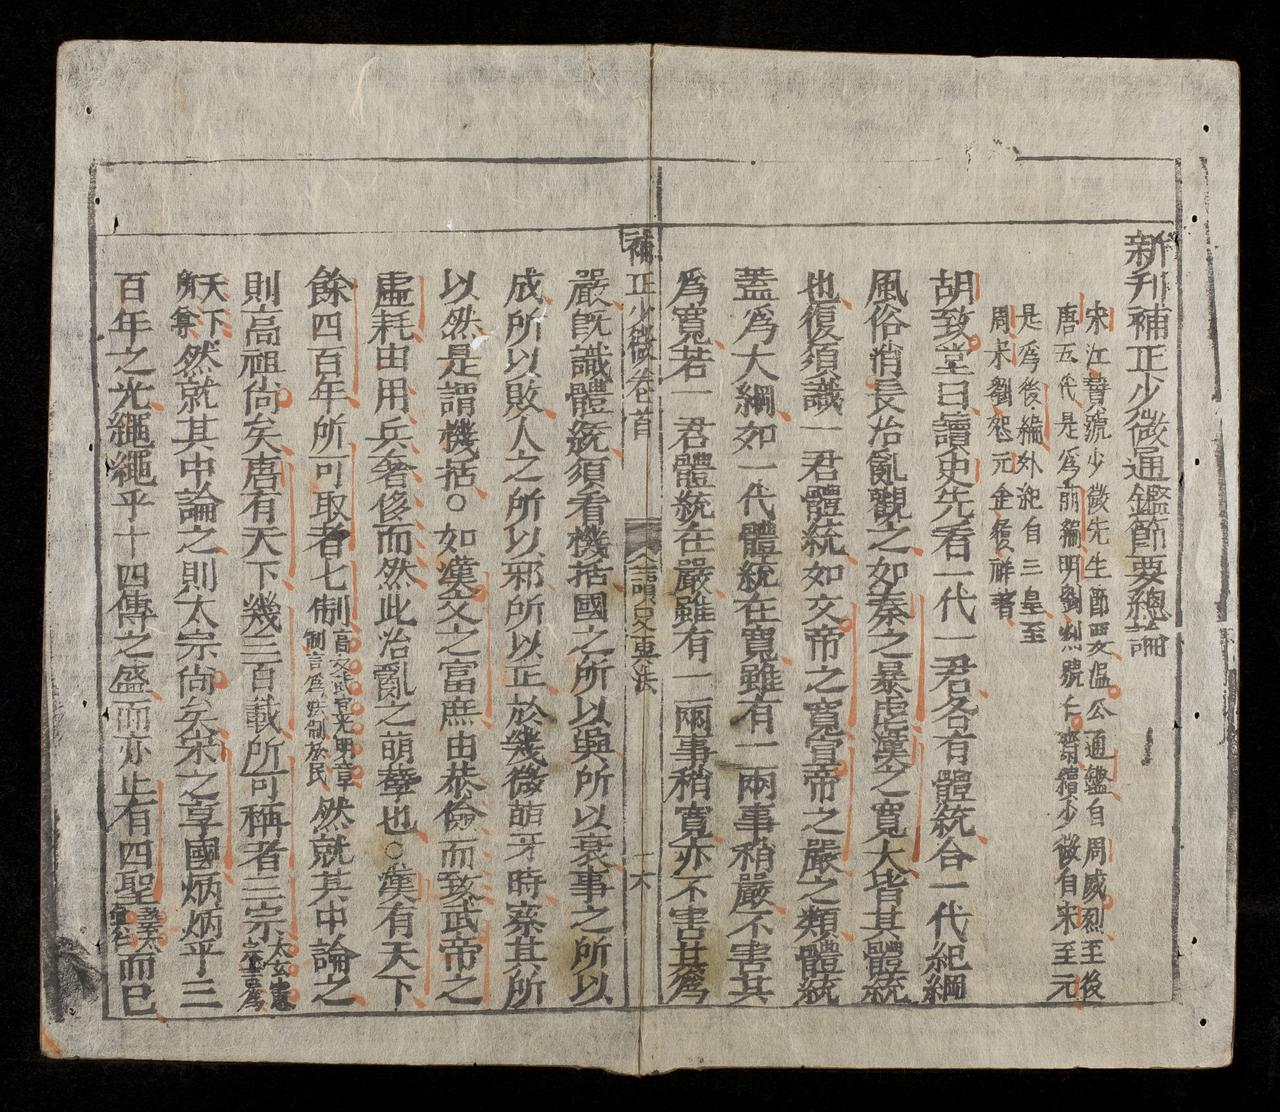 新刋補正少微通鑑節要總論
宋江贄號少微先生節要溫公通鑑自周威烈至後
唐五代是爲前編明劉剡號仁齋續少微自宋至元
是爲後編外紀自三皇至
周宋劉恕元金履祥著
胡致堂曰讀史先看一代一君各有體統合一代紀綱
風俗消長治亂觀之如秦之暴虐漢之寬大皆其體統
也復須識一君體統如文帝之寬宣帝之嚴之類體統
蓋爲大綱如一代體統在寬雖有一兩事稍嚴不害其
爲寬若一君體統在嚴雖有一兩事稍寬亦不害其爲
補正少微卷首
讀史要法
二六
嚴旣識體統須看機括國之所以興所以衰事之所以
成所以敗人之所以邪所以正於幾微萌牙時察其所
以然是謂機括○如漢文之富庶由恭儉而致武帝之
虛耗由用兵奢侈而然此治亂之萌孽也○漢有天下
餘四百年所可取者七制高文武宣光明章
制言爲法制於民
然就其中論之
則高祖尙矣唐有天下幾三百載所可稱者三宗太玄憲
宗三宗爲
天下
所尊
然就其中論之則太宗尙矣宋之享國炳炳乎三
百年之光繩繩乎十四傳之盛而亦止有四聖
而已